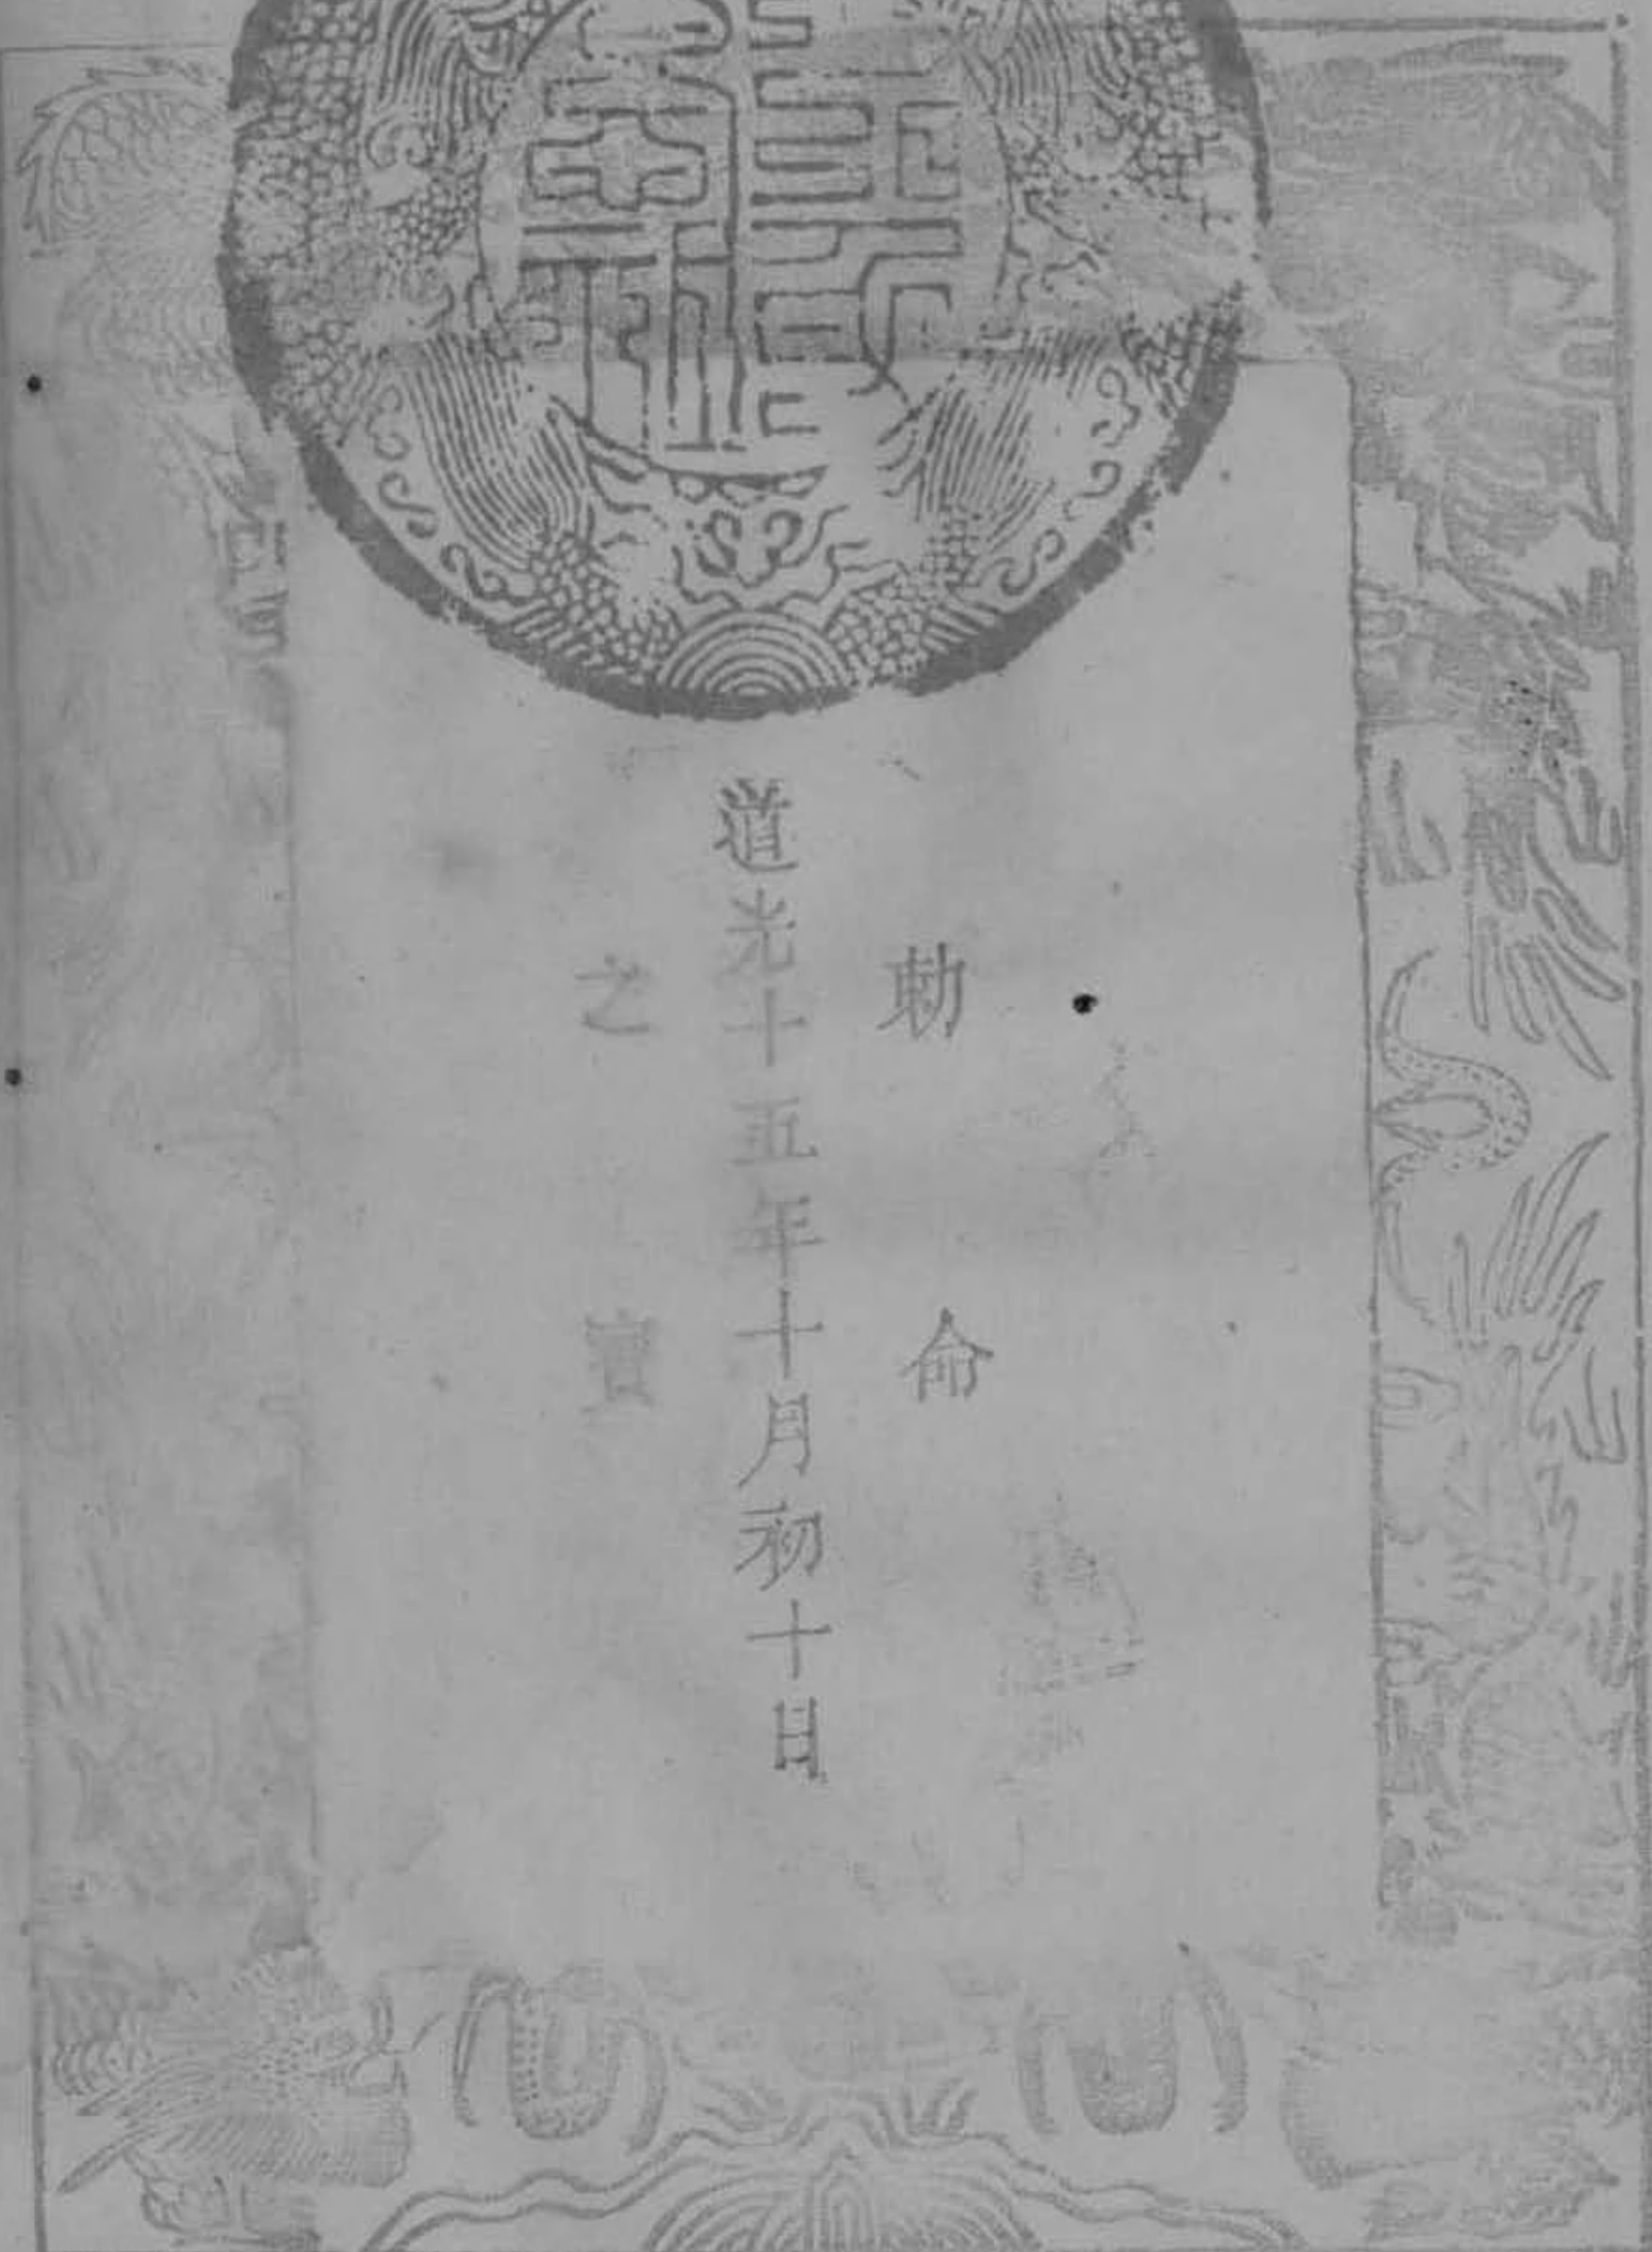 勅命
道光十五年十月初十日
之寳